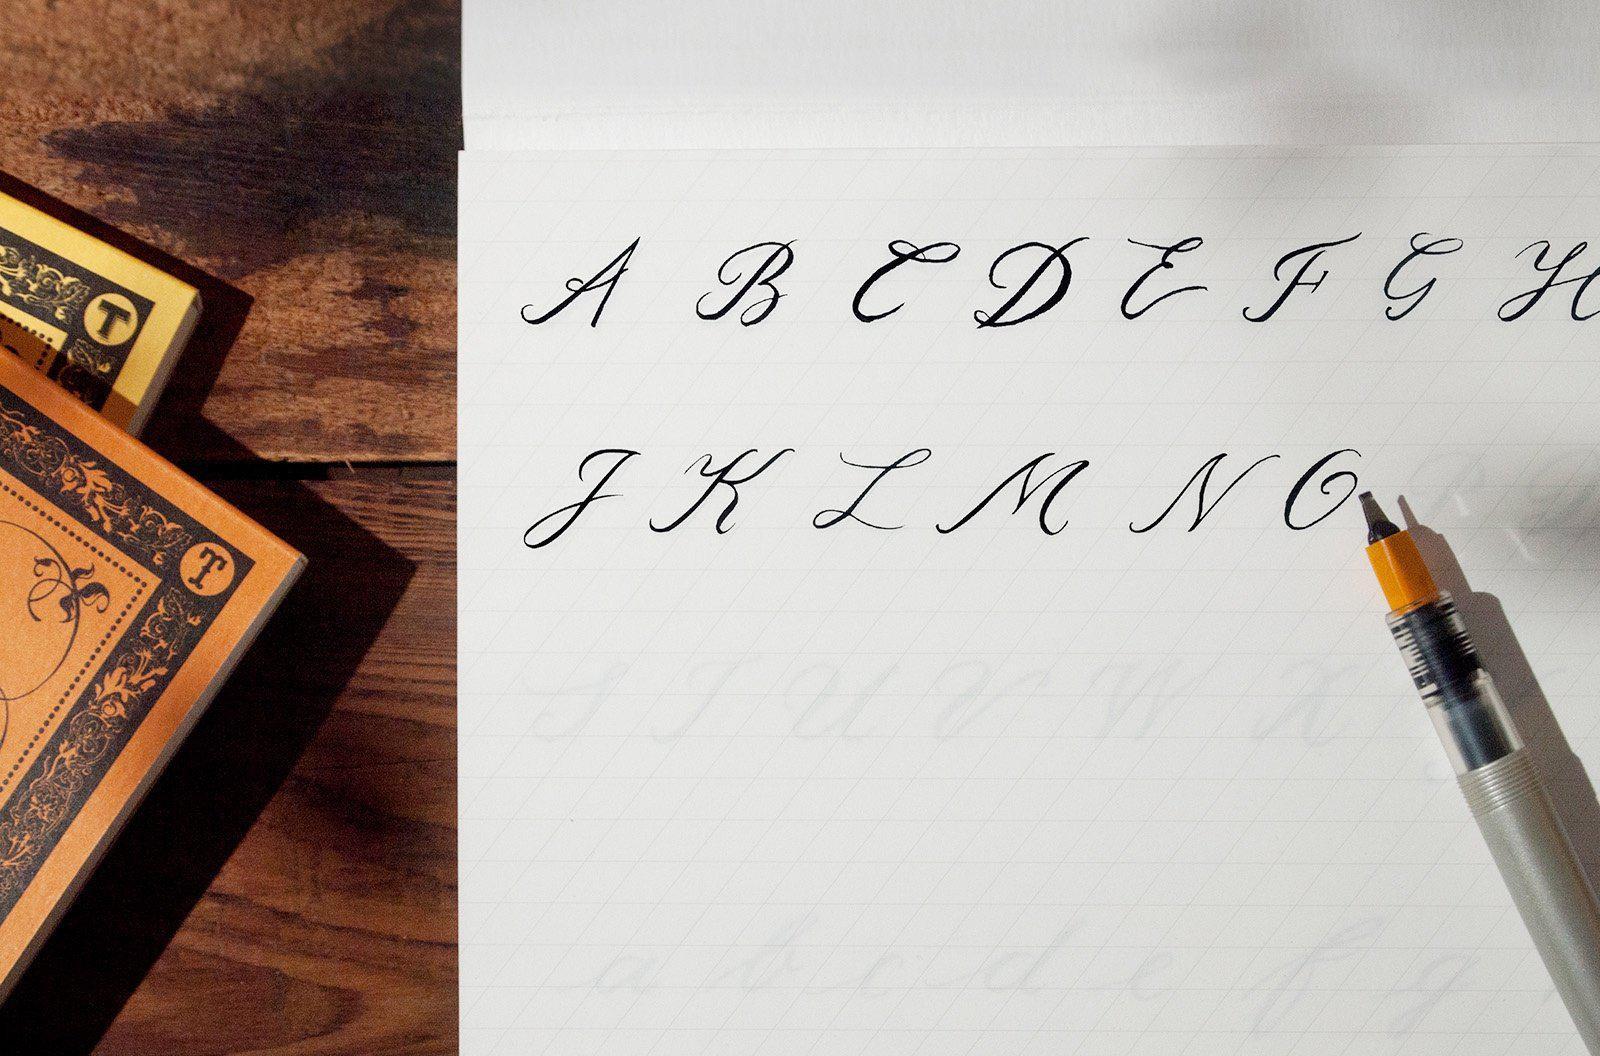 A B C D E F G H
J K L M N O
S T U V W X
a b c d e f g
T
T